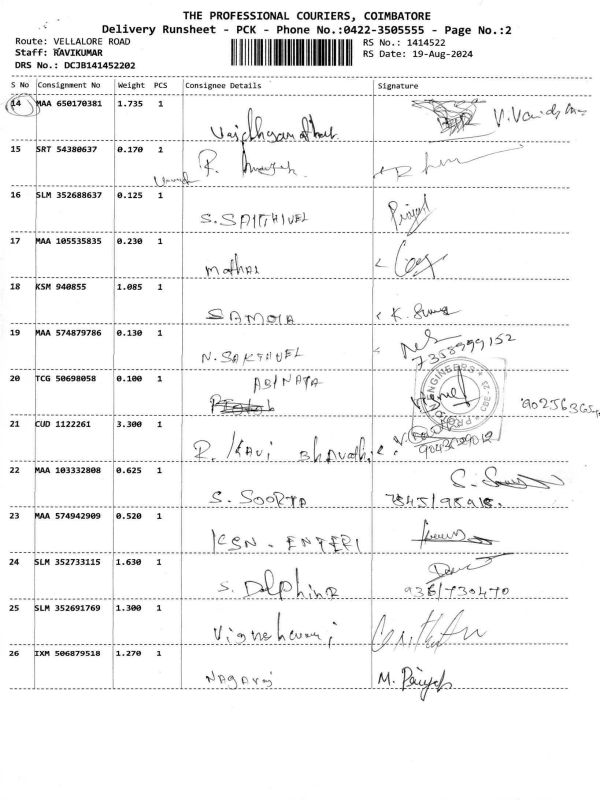 THE PROFESSIONAL COURIERS, COIMBATORE
Delivery Runsheet - PCK - Phone No.:0422-3505555 - Page No.:2
Route: VELLALORE ROAD
RS No.: 1414522
Staff: RAVIKUMAR
RS Date: 19-Aug-2024
DRS No.: DCJB141452202
S No Consignment No Weight PCS Consignee Details Signature
14 MAA 650170381 1.735 1
15 SRT 54380637 0.170 1
R.
16 SLM 352688637 0.125 1
S. SAKTHIVEL
17 MAA 105535835 0.230 1
mathai
18 KSM 940855 1.085 1
19 MAA 574879786 0.130 1
N. SAKTHIVEL 7358999152
20 TCG 50698058 0.100 1
ABINAYA
ENGINEERS
21 CUD 1122261 3.300 1
R.
22 MAA 103332808 0.625 1
S. SOORYA
23 MAA 574942909 0.520 1
KSN - ENTERI
24 SLM 352733115 1.630 1
S. Dolphina 9361730470
25 SLM 352691769 1.300 1
26 IXM 506879518 1.270 1
NAGARAJ